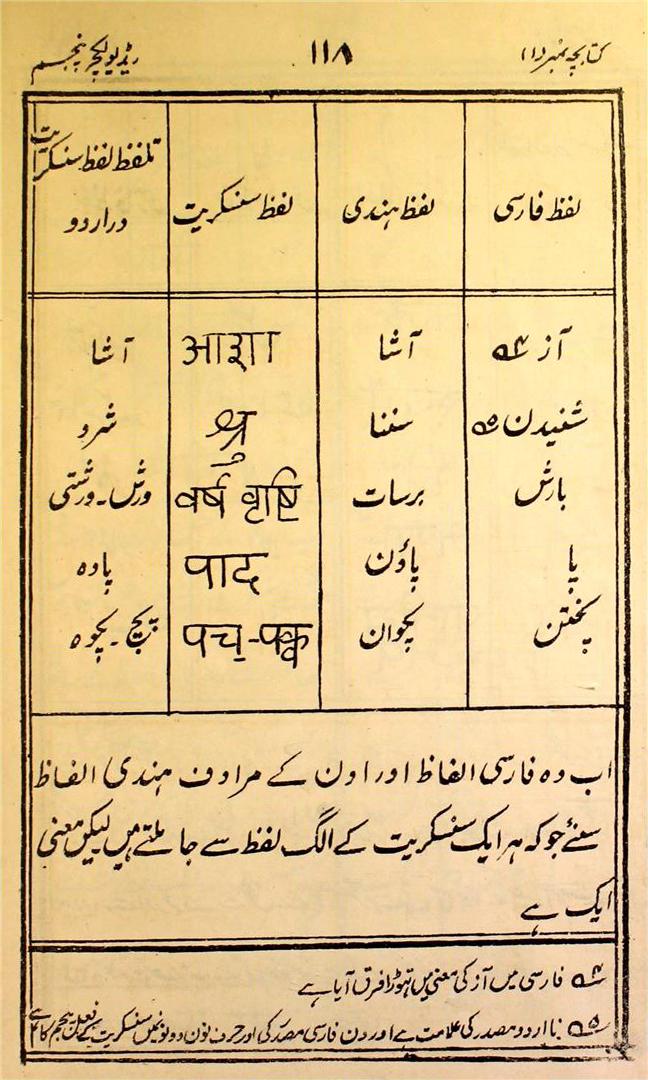 کتابچہ نمبر (۱) ۱۱۸ ریڈیو لکچر پنجم
لفظ فارسی لفظ ہندی لفظ سنسکریت تلفظ لفظ سنسکرایت
در اردو
آز ؎۴ آشا आशा آشا
شنیدن ؎۵ سننا श्रु شرو
بارش برسات वर्ष वृष्टि ورش۔ورشتی
پا پاؤن पाद پادہ
پختن پکوان पच्-पक्व پچ۔پکوہ
اب وہ فارسی الفاظ اور اون کے مرادف ہندی الفاظ
سنئے جو کہ ہر ایک سنسکریت کے الگ لفظ سے جا ملتے ہیں لیکن معنی
ایک ہے
؎۴ فارسی میں آز کی معنی میں تھوڑا فرق آیا ہے
؎۵ نا اردو مصدر کی علامت ہے اور دن فارسی مصدر کی اور حرف نون دونو نمیں سنسکریت کے فعل پنجم کا ہے